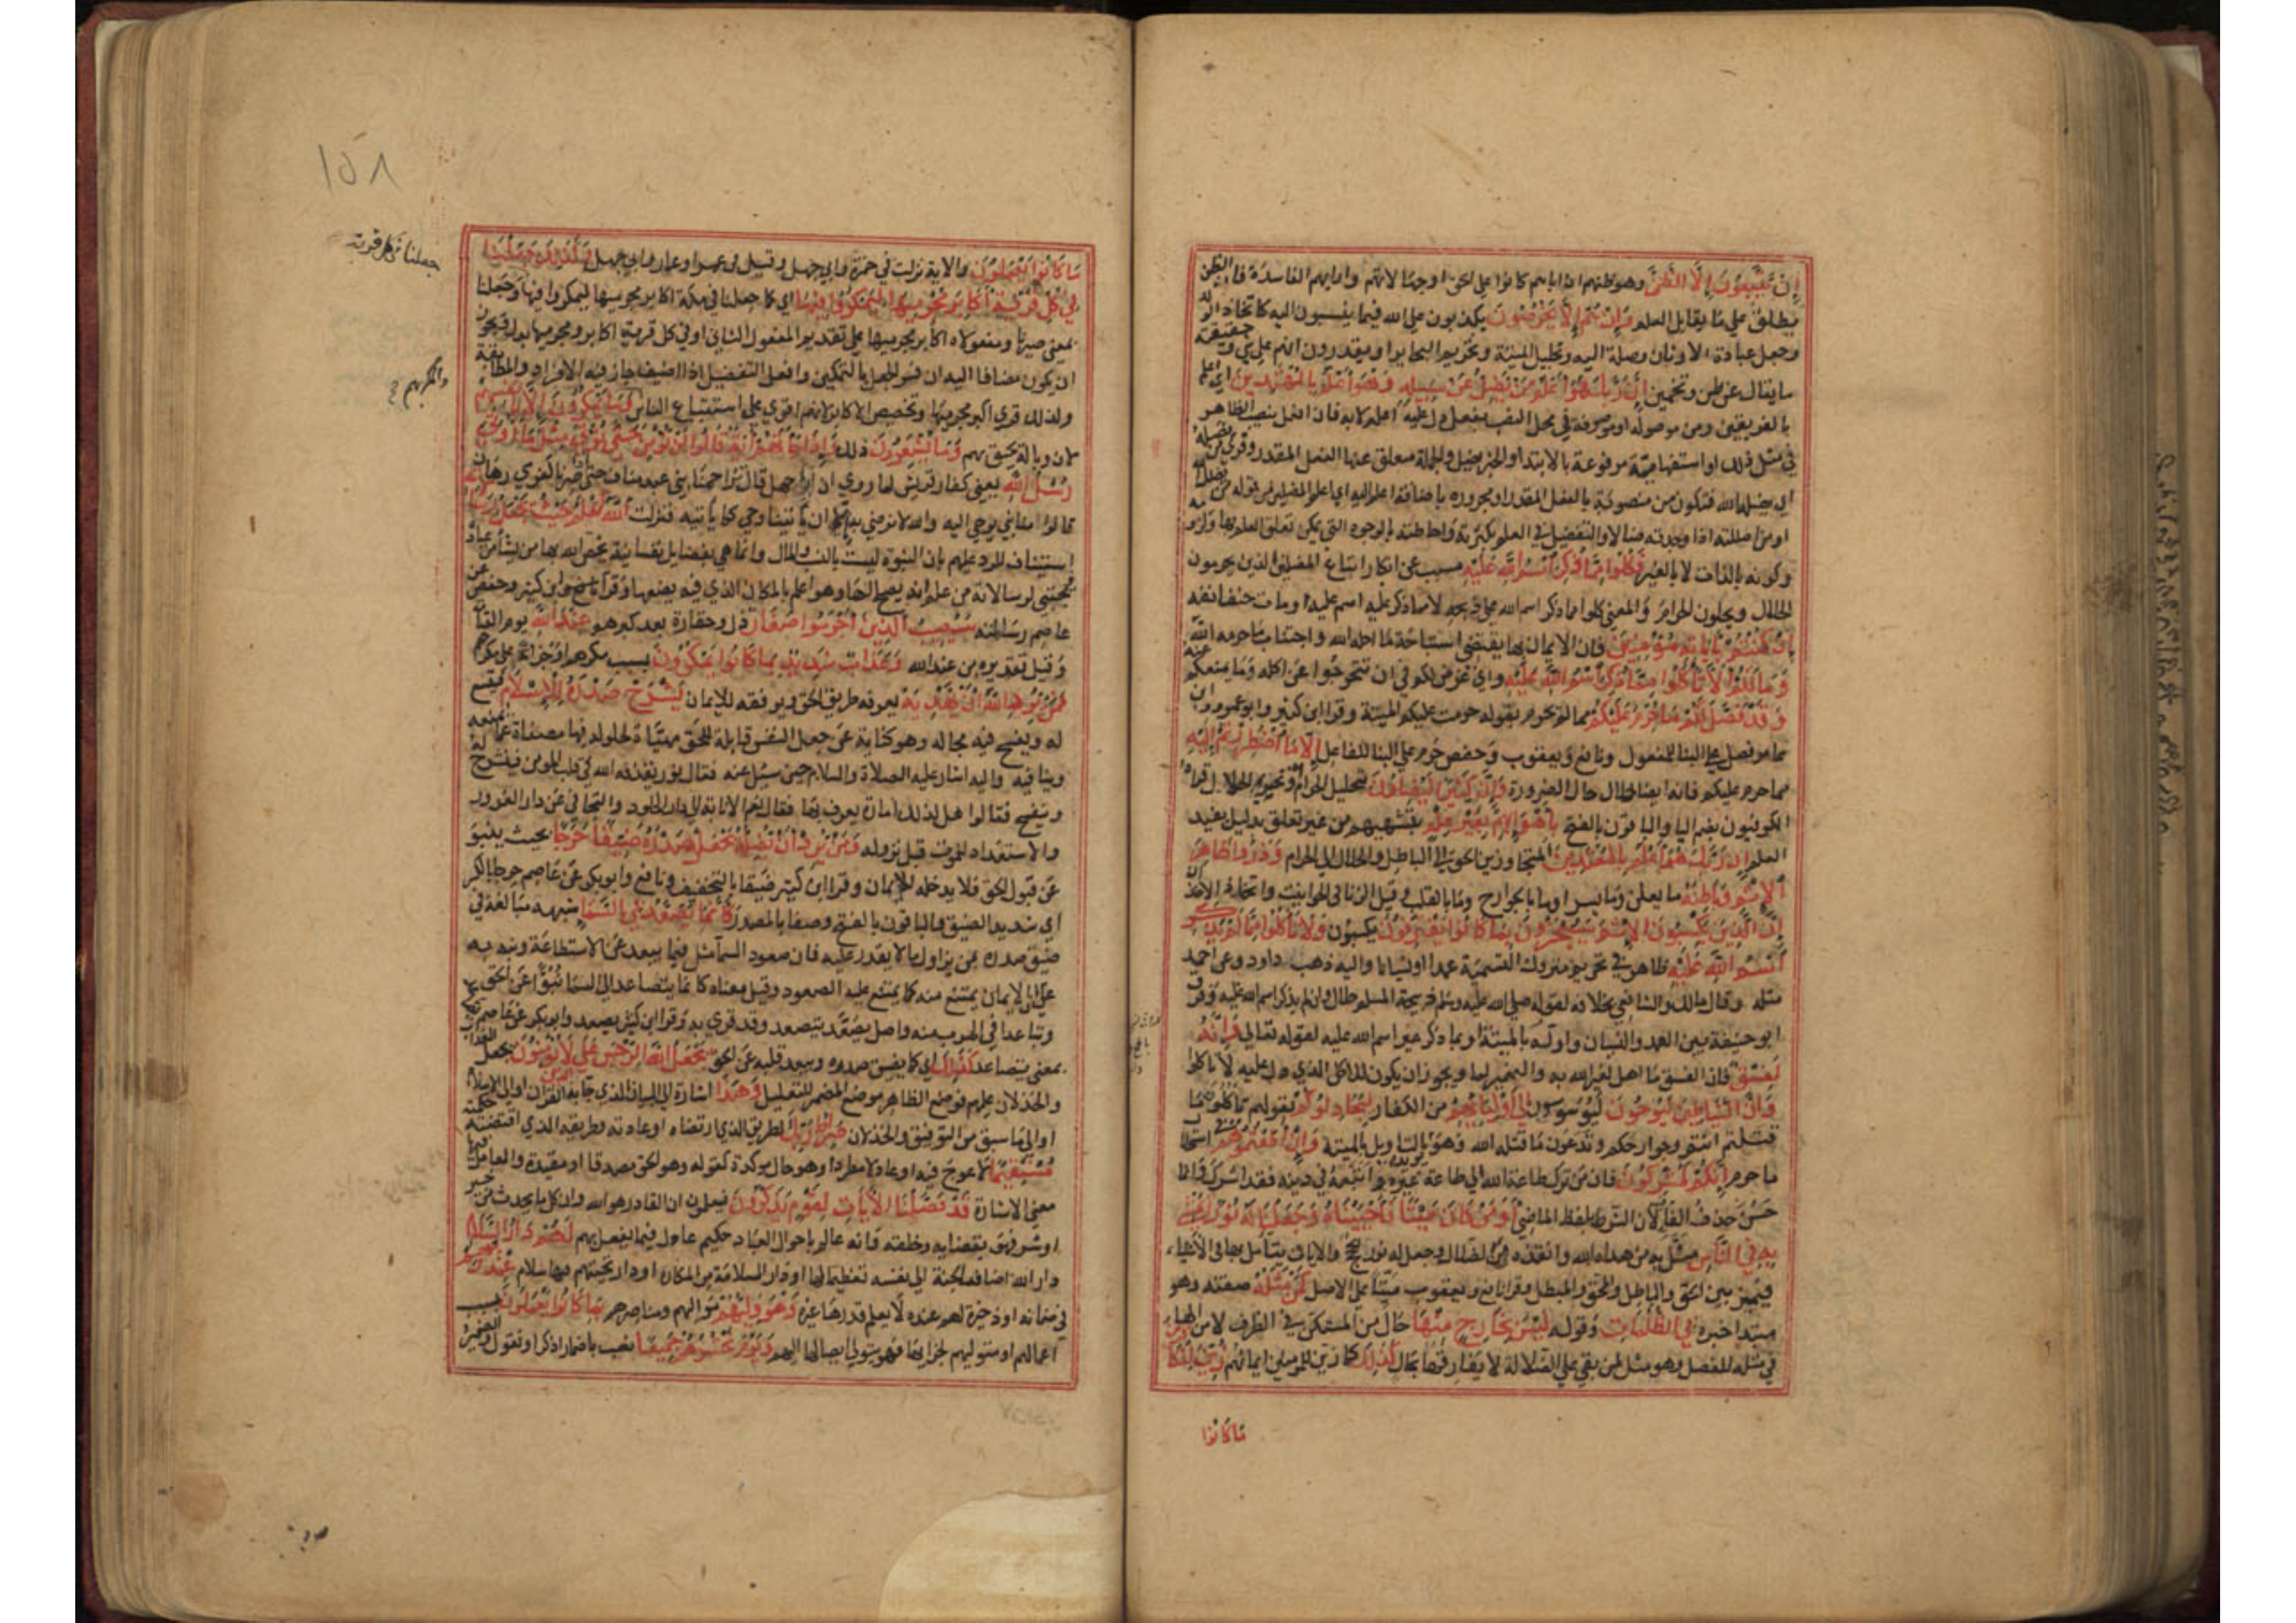 إِنْ تَتَّبِعُونَ إِلَّا الظَّنَّ وهو ظنهم ان اباءهم كانوا على الحق او جهالاتهم واراءهم الفاسدة فان الظن
يطلق على ما يقابل العلم وَإِنْ هُمْ إِلَّا يَخْرُصُونَ يكذبون على الله فيما ينسبون اليه كاتخاذ الولد
وجعل عبادة الاوثان وصلة اليه وتحليل الميتة وتحريم البحاير او يقدرون انهم على شي وحقيقته
ما يقال عن ظن وتخمين إِنَّ رَبَّكَ هُوَ أَعْلَمُ مَنْ يَضِلُّ عَنْ سَبِيلِهِ وَهُوَ أَعْلَمُ بِالْمُهْتَدِينَ اي اعلم
بالفريقين ومن موصولة او موصوفة في محل النصب بفعل دل عليه اعلم لا به فان افعل لا ينصب الظاهر
في مثل ذلك او استفهامية مرفوعة بالابتدا والخبر يضل والجملة معلق عنها الفعل المقدر وقرئ من يضله
اي يضله الله فتكون من منصوبة بالفعل المقدر او مجرورة باضافة اعلم اليه اي اعلم المضلين من قوله من يضلل الله
او من اضللته اذا وجدته ضالا والتفضيل في العلم بكثرته واحاطته بالوجوه التي يمكن تعلق العلم بها ولزومه
وكونه بالذات لا بالغير فَكُلُوا مِمَّا ذُكِرَ اسْمُ اللَّهِ عَلَيْهِ مسبب عن انكار اتباع المضلين الذين يحرمون
الحلال ويحلون الحرام والمعنى كلوا مما ذكر اسم الله على ذبحه لا مما ذكر عليه اسم غيره او مات حتف انفه
إِنْ كُنْتُمْ بِآيَاتِهِ مُؤْمِنِينَ فان الايمان بها يقتضي استباحة ما احله الله واجتناب ما حرمه الله
وَمَا لَكُمْ أَلَّا تَأْكُلُوا مِمَّا ذُكِرَ اسْمُ اللَّهِ عَلَيْهِ واي غرض لكم في ان تتحرجوا عن اكله وما يمنعكم عنه
وَقَدْ فَصَّلَ لَكُمْ مَا حَرَّمَ عَلَيْكُمْ مما لم يحرم بقوله حرمت عليكم الميتة وقرا ابن كثير وابو عمرو وابن
عامر فصل على البنا للمفعول ونافع ويعقوب وحفص حرم على البنا للفاعل إِلَّا مَا اضْطُرِرْتُمْ إِلَيْهِ
مما حرم عليكم فانه ايضا حلال حال الضرورة وَإِنَّ كَثِيرًا لَيُضِلُّونَ بتحليل الحرام وتحريم الحلال قرا
الكوفيون بضم اليا والباقون بالفتح بِأَهْوَائِهِمْ بِغَيْرِ عِلْمٍ بتشهيهم من غير تعلق بدليل يفيد
العلم إِنَّ رَبَّكَ هُوَ أَعْلَمُ بِالْمُعْتَدِينَ المتجاوزين الحق الى الباطل والحلال الى الحرام وَذَرُوا ظَاهِرَ
الْإِثْمِ وَبَاطِنَهُ ما يعلن وما يسر او ما بالجوارح وما بالقلب وقيل الزنا في الحوانيت واتخاذ الاخدان
إِنَّ الَّذِينَ يَكْسِبُونَ الْإِثْمَ سَيُجْزَوْنَ بِمَا كَانُوا يَقْتَرِفُونَ يكسبون وَلَا تَأْكُلُوا مِمَّا لَمْ يُذْكَرِ
اسْمُ اللَّهِ عَلَيْهِ ظاهر في تحريم متروك التسمية عمدا او نسيانا واليه ذهب داود وعن احمد
مثله وقال مالك والشافعي بخلافه لقوله صلى الله عليه وسلم ذبيحة المسلم حلال وان لم يذكر اسم الله عليه وفرق
ابو حنيفة بين العمد والنسيان واوله بالميتة او بما ذكر غير اسم الله عليه لقوله تعالى وَإِنَّهُ
لَفِسْقٌ فان الفسق ما اهل لغير الله به والضمير لما ويجوز ان يكون للاكل الذي دل عليه لا تاكلوا
وَإِنَّ الشَّيَاطِينَ لَيُوحُونَ ليوسوسون إِلَى أَوْلِيَائِهِمْ من الكفار لِيُجَادِلُوكُمْ بقولهم تاكلون ما
قتلتم انتم وجوارحكم وتدعون ما قتله الله وهو يؤيد التاويل بالميتة وَإِنْ أَطَعْتُمُوهُمْ في استحلال
ما حرم إِنَّكُمْ لَمُشْرِكُونَ فان من ترك طاعة الله الى طاعة غيره واتبعه في دينه فقد اشرك وانما
حسن حذف الفا لان الشرط بلفظ الماضي أَوَمَنْ كَانَ مَيْتًا فَأَحْيَيْنَاهُ وَجَعَلْنَا لَهُ نُورًا يَمْشِي
بِهِ فِي النَّاسِ مثل به من هداه الله وانقذه من الضلال وجعل له نور الحجج والايات يتامل بها في الاشياء
فيميز بين الحق والباطل والمحق والمبطل وقرا نافع ويعقوب ميتا على الاصل كَمَنْ مَثَلُهُ صفته وهو
مبتدا خبره فِي الظُّلُمَاتِ وقوله لَيْسَ بِخَارِجٍ مِنْهَا حال من المستكن في الظرف لا من الهاء
في مثله للفصل وهو مثل لمن بقي على الضلالة لا يفارقها بحال كَذَلِكَ كما زين للمومنين ايمانهم زُيِّنَ لِلْكَافِرِينَ
مَا كَانُوا
١٥٨
مَا كَانُوا يَعْمَلُونَ والاية نزلت في حمزة وابي جهل وقيل في عمر او عمار وابي جهل وَكَذَلِكَ جَعَلْنَا
فِي كُلِّ قَرْيَةٍ أَكَابِرَ مُجْرِمِيهَا لِيَمْكُرُوا فِيهَا اي كما جعلنا في مكة اكابر مجرميها ليمكروا فيها وجعلنا
جعلنا في كل قرية
بمعنى صيرنا ومفعولاه اكابر مجرميها على تقديم المفعول الثاني او في كل قرية اكابر ومجرميها بدل ويجوز
ان يكون مضافا اليه ان فسر الجعل بالتمكين وافعل التفضيل اذا اضيف جاز فيه الافراد والمطابقة
ولذلك قرئ اكبر مجرميها وتخصيص الاكابر لانهم اقوى على استتباع الناس وَمَا يَمْكُرُونَ إِلَّا بِأَنْفُسِهِمْ
لان وباله يحيق بهم وَمَا يَشْعُرُونَ ذلك وَإِذَا جَاءَتْهُمْ آيَةٌ قَالُوا لَنْ نُؤْمِنَ حَتَّى نُؤْتَى مِثْلَ مَا أُوتِيَ
رُسُلُ اللَّهِ يعني كفار قريش لما روي ان ابا جهل قال تزاحمنا بني عبد مناف حتى اذا صرنا كفرسي رهان
قالوا منا نبي يوحى اليه والله لا نرضى به الا ان ياتينا وحي كما ياتيه فنزلت اللَّهُ أَعْلَمُ حَيْثُ يَجْعَلُ رِسَالَتَهُ
استيناف للرد عليهم بان النبوة ليست بالنسب والمال وانما هي بفضايل نفسانية يخص الله بها من يشا من عباده
فيجتبي لرسالاته من علم انه يصلح لها وهو اعلم بالمكان الذي فيه يضعها وقرا ابن كثير وحفص عن
عاصم رسالته سَيُصِيبُ الَّذِينَ أَجْرَمُوا صَغَارٌ ذل وحقارة بعد كبرهم عِنْدَ اللَّهِ يوم القيامة
وقيل تقديره من عند الله وَعَذَابٌ شَدِيدٌ بِمَا كَانُوا يَمْكُرُونَ بسبب مكرهم او جزاء على مكرهم
فَمَنْ يُرِدِ اللَّهُ أَنْ يَهْدِيَهُ يعرفه طريق الحق ويوفقه للايمان يَشْرَحْ صَدْرَهُ لِلْإِسْلَامِ فيتسع
له ويفسح فيه مجاله وهو كناية عن جعل النفس قابلة للحق مهياة لحلوله فيها مصفاة عما يمنعه
وينافيه واليه اشار عليه الصلاة والسلام حين سئل عنه فقال نور يقذفه الله في قلب المومن فينشرح له
وينفسح فقالوا هل لذلك امارة يعرف بها فقال نعم الانابة الى دار الخلود والتجافي عن دار الغرور
والاستعداد للموت قبل نزوله وَمَنْ يُرِدْ أَنْ يُضِلَّهُ يَجْعَلْ صَدْرَهُ ضَيِّقًا حَرَجًا بحيث ينبو
عن قبول الحق فلا يدخله الايمان وقرا ابن كثير ضيقا بالتخفيف ونافع وابو بكر عن عاصم حرجا بالكسر
اي شديد الضيق والباقون بالفتح وصفا بالمصدر كَأَنَّمَا يَصَّعَّدُ فِي السَّمَاءِ شبهه مبالغة في
ضيق صدره بمن يزاول ما لا يقدر عليه فان صعود السما مثل فيما يبعد عن الاستطاعة ونبه به
على ان الايمان يمتنع منه كما يمتنع عليه الصعود وقيل معناه كانما يتصاعد الى السما نبوا عن الحق
وتباعدا في الهرب منه واصل يصعد يتصعد وقد قرئ به وقرا ابن كثير يصعد وابو بكر عن عاصم يصاعد
بمعنى يتصاعد كَذَلِكَ اي كما يضيق صدره ويبعد قلبه عن الحق يَجْعَلُ اللَّهُ الرِّجْسَ عَلَى الَّذِينَ لَا يُؤْمِنُونَ يجعل العذاب
والخذلان عليهم فوضع الظاهر موضع المضمر للتعليل وَهَذَا اشارة الى البيان الذي جا به القران او الى الاسلام
او الى ما سبق من التوفيق والخذلان صِرَاطُ رَبِّكَ الطريق الذي ارتضاه او عادته وطريقه الذي اقتضته حكمته
مُسْتَقِيمًا لا عوج فيه او عادلا مطردا وهو حال موكدة كقوله وهو الحق مصدقا او مقيدة والعامل فيها
معنى الاشارة قَدْ فَصَّلْنَا الْآيَاتِ لِقَوْمٍ يَذَّكَّرُونَ فيعلمون ان القادر هو الله وان كل ما يحدث من خير
او شر فهو بقضايه وخلقه وانه عالم باحوال العباد حكيم عادل فيما يفعل بهم لَهُمْ دَارُ السَّلَامِ
دار الله اضاف الجنة الى نفسه تعظيما لها او دار السلامة من المكاره او دار تحيتهم فيها سلام عِنْدَ رَبِّهِمْ
في ضمانه او ذخيرة لهم عنده لا يعلم قدرها غيره وَهُوَ وَلِيُّهُمْ مواليهم وناصرهم بِمَا كَانُوا يَعْمَلُونَ بسبب
اعمالهم او متوليهم بجزايها فيتولى ايصالها اليهم وَيَوْمَ نَحْشُرُهُمْ جَمِيعًا نصب باضمار اذكر او نقول والضمير